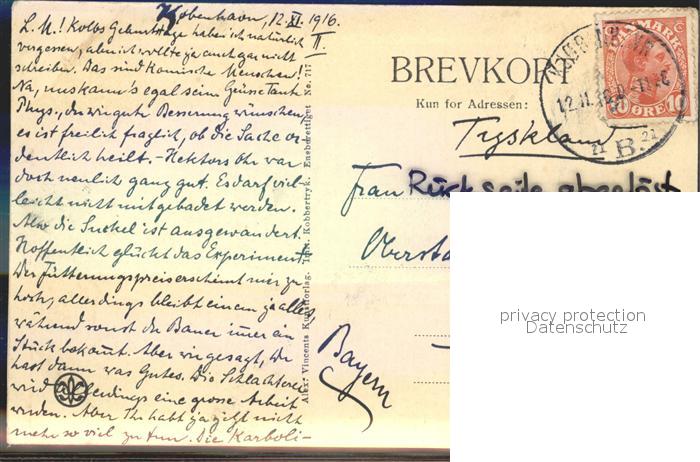 København, 12. XI. 1916.
II.
L. M.! Kolbs Geburtstage habe ich natürlich
vergessen, aber ich wollte ja auch gar nicht
schreiben. Das sind komische Menschen!
Na, uns kann's egal sein. Grüsse Tante
Phys., der wir gute Besserung wünschen,
es ist freilich fraglich, ob die Sache or-
dentlich heilt. - Hektors Ohr war
doch neulich ganz gut. Es darf viel-
leicht nicht mitgebadet werden.
Also die Suckel ist ausgewandert.
Hoffentlich glückt das Experiment.
Der Fütterungspreis erscheint mir zu
hoch, allerdings bleibt einem ja alles,
während sonst der Bauer immer ein
Stück bekommt. Aber wie gesagt, Ihr
habt dann was Gutes. Die Schlachterei
wird allerdings eine grosse Arbeit
werden. Aber Ihr habt ja jetzt nicht
mehr so viel zu tun. Die Karboli-
Alex. Vincents Kunstforlag. Kobbertryk. Eneberettiget No. 717
BREVKORT
Kun for Adressen:
DANMARK
10 ØRE 10
KJØBENHAVN
12.11.16
B.
Tyskland
Frau Rückseite abgelöst
Obersta
Bayern
privacy protection
Datenschutz